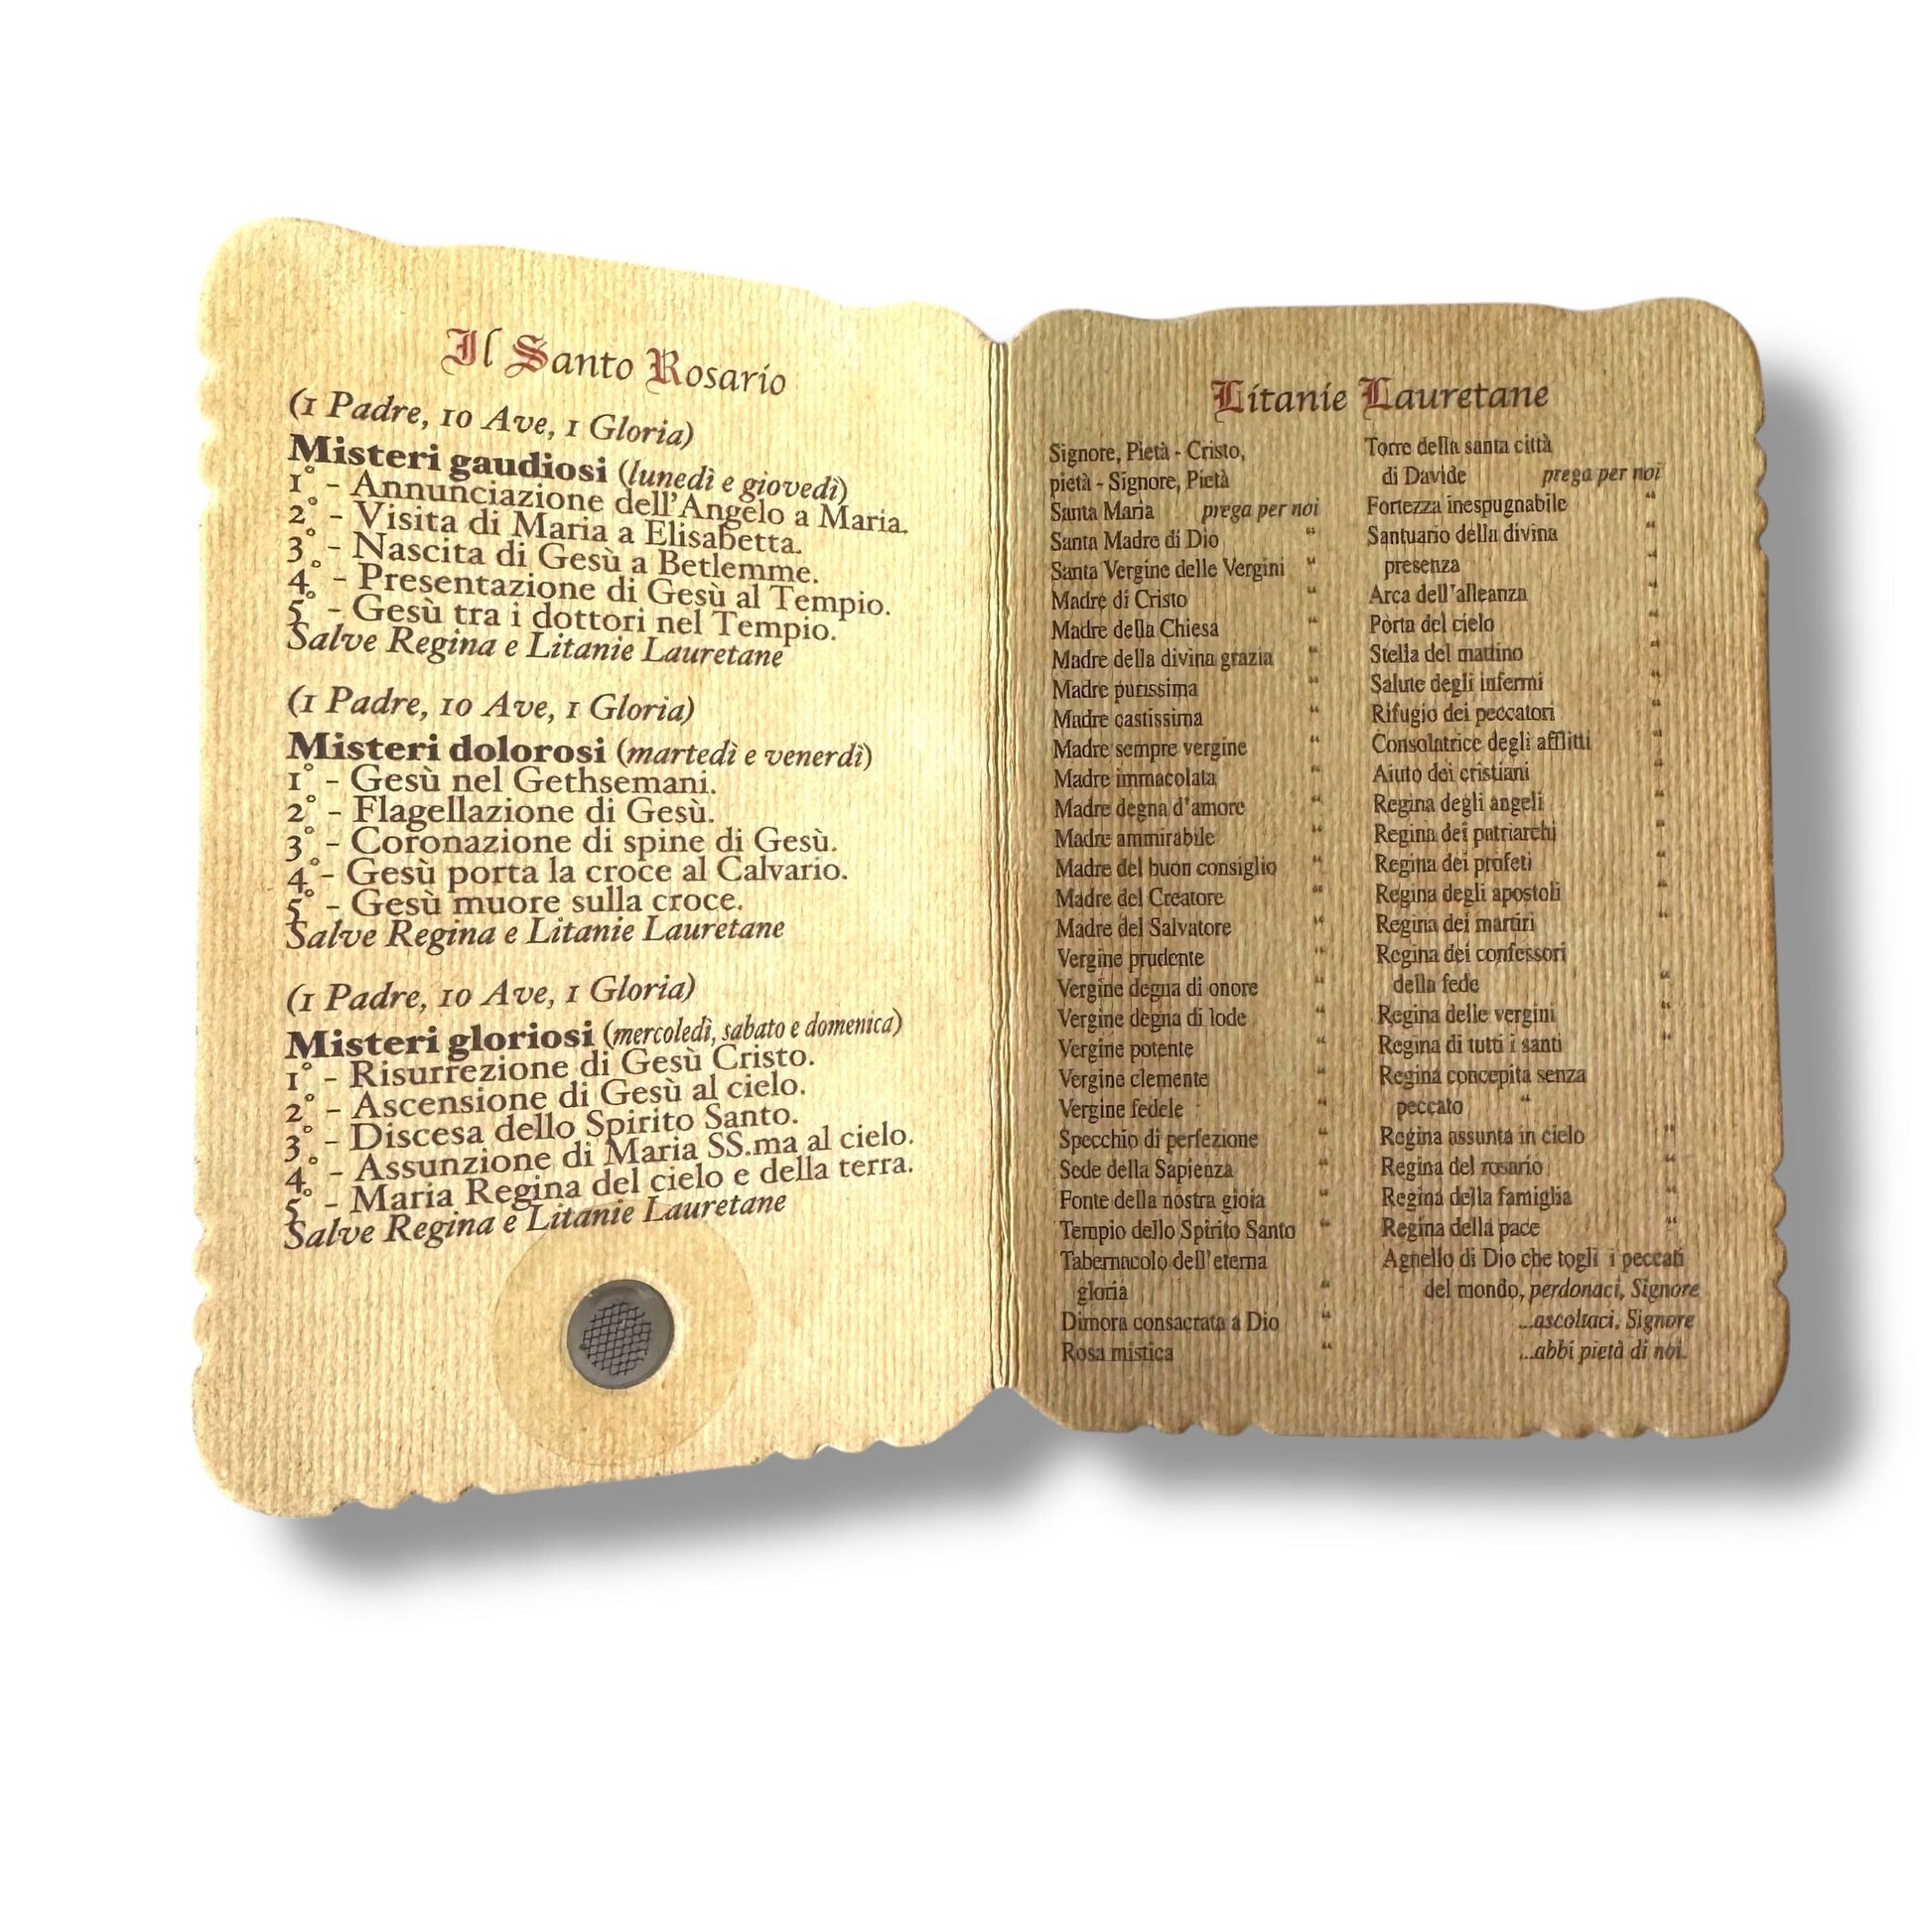 Il Santo Rosario
(1 Padre, 10 Ave, 1 Gloria)
Misteri gaudiosi (lunedì e giovedì)
1° - Annunciazione dell'Angelo a Maria.
2° - Visita di Maria a Elisabetta.
3° - Nascita di Gesù a Betlemme.
4° - Presentazione di Gesù al Tempio.
5° - Gesù tra i dottori nel Tempio.
Salve Regina e Litanie Lauretane
(1 Padre, 10 Ave, 1 Gloria)
Misteri dolorosi (martedì e venerdì)
1° - Gesù nel Gethsemani.
2° - Flagellazione di Gesù.
3° - Coronazione di spine di Gesù.
4° - Gesù porta la croce al Calvario.
5° - Gesù muore sulla croce.
Salve Regina e Litanie Lauretane
(1 Padre, 10 Ave, 1 Gloria)
Misteri gloriosi (mercoledì, sabato e domenica)
1° - Risurrezione di Gesù Cristo.
2° - Ascensione di Gesù al cielo.
3° - Discesa dello Spirito Santo.
4° - Assunzione di Maria SS.ma al cielo.
5° - Maria Regina del cielo e della terra.
Salve Regina e Litanie Lauretane
Litanie Lauretane
Signore, Pietà - Cristo,
pietà - Signore, Pietà
Santa Maria prega per noi
Santa Madre di Dio “
Santa Vergine delle Vergini “
Madre di Cristo “
Madre della Chiesa “
Madre della divina grazia “
Madre purissima “
Madre castissima “
Madre sempre vergine “
Madre immacolata “
Madre degna d'amore “
Madre ammirabile “
Madre del buon consiglio “
Madre del Creatore “
Madre del Salvatore “
Vergine prudente “
Vergine degna di onore “
Vergine degna di lode “
Vergine potente “
Vergine clemente “
Vergine fedele “
Specchio di perfezione “
Sede della Sapienza “
Fonte della nostra gioia “
Tempio dello Spirito Santo “
Tabernacolo dell'eterna
gloria “
Dimora consacrata a Dio “
Rosa mistica “
Torre della santa città
di Davide prega per noi
Fortezza inespugnabile “
Santuario della divina “
presenza “
Arca dell'alleanza “
Porta del cielo “
Stella del mattino “
Salute degli infermi “
Rifugio dei peccatori “
Consolatrice degli afflitti “
Aiuto dei cristiani “
Regina degli angeli “
Regina dei patriarchi “
Regina dei profeti “
Regina degli apostoli “
Regina dei martiri “
Regina dei confessori
della fede “
Regina delle vergini “
Regina di tutti i santi “
Regina concepita senza
peccato “
Regina assunta in cielo “
Regina del rosario “
Regina della famiglia “
Regina della pace “
Agnello di Dio che togli i peccati
del mondo, perdonaci, Signore
...ascoltaci, Signore
...abbi pietà di noi.